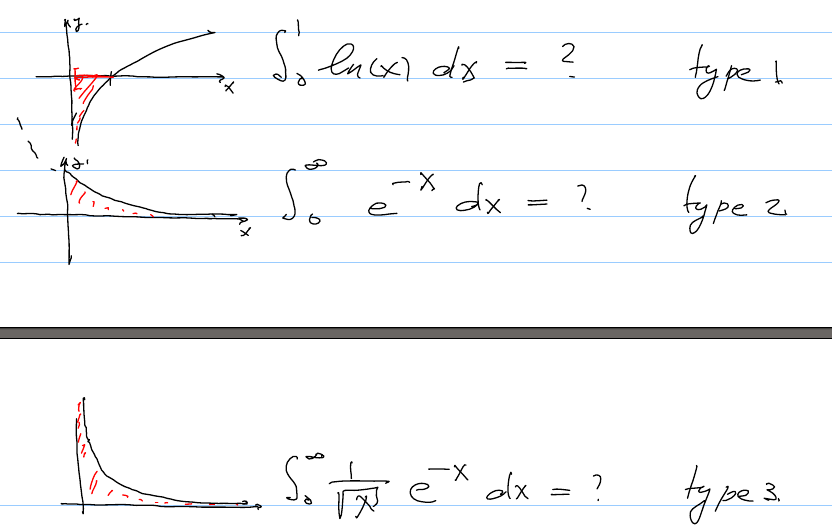 y.
∫₀¹ ln(x) dx = ? type 1
x
y.
∫₀^∞ e^{-x} dx = ? type 2
x
∫₀^∞ 1/√x e^{-x} dx = ? type 3.